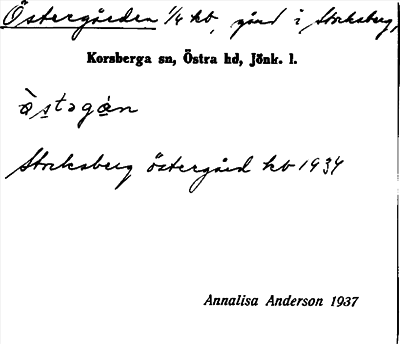 Östergården 1/4 kb, gård i Stocksberg,
Korsberga sn, Östra hd, Jönk. l.
östagån
Stocksberg östergård kb 1934
Annalisa Anderson 1937